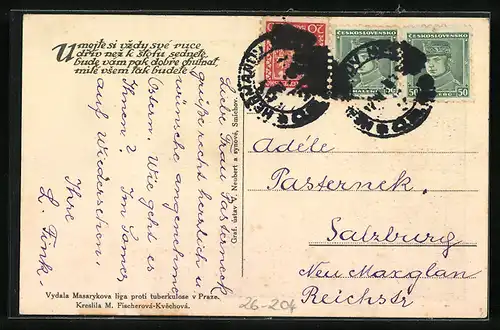 Umejte si vždy své ruce
dřív než k stolu sednete,
bude vám pak dobře chutnat,
milé všem tak budete.
Liebe Frau Pasterneck
grüße recht herzlich u
wünsche angenehme
Ostern. Wie geht es
Ihnen? Im Somer
auf Wiedersehen.
Ihre
L. Fink.
Vydala Masarykova liga proti tuberkulose v Praze.
Kreslila M. Fischerová-Kvěchová.
Graf. ústav V. Neubert a synové, Smíchov.
20
ČESKOSLOVENSKO
50
ČESKOSLOVENSKO
50
Adéle
Pasternek.
Salzburg
Neu Maxglan
Reichstr
26-204